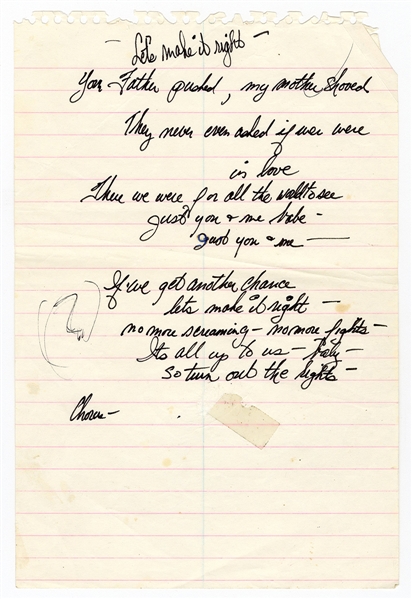 — Lets make it right —
Your Father pushed, my mother shoved
They never even asked if we were
in love
There we were for all the world to see
just you & me babe —
just you & me —
If we got another chance
lets make it right —
no more screaming — no more fights —
Its all up to us — baby —
so turn out the lights —
Chorus —